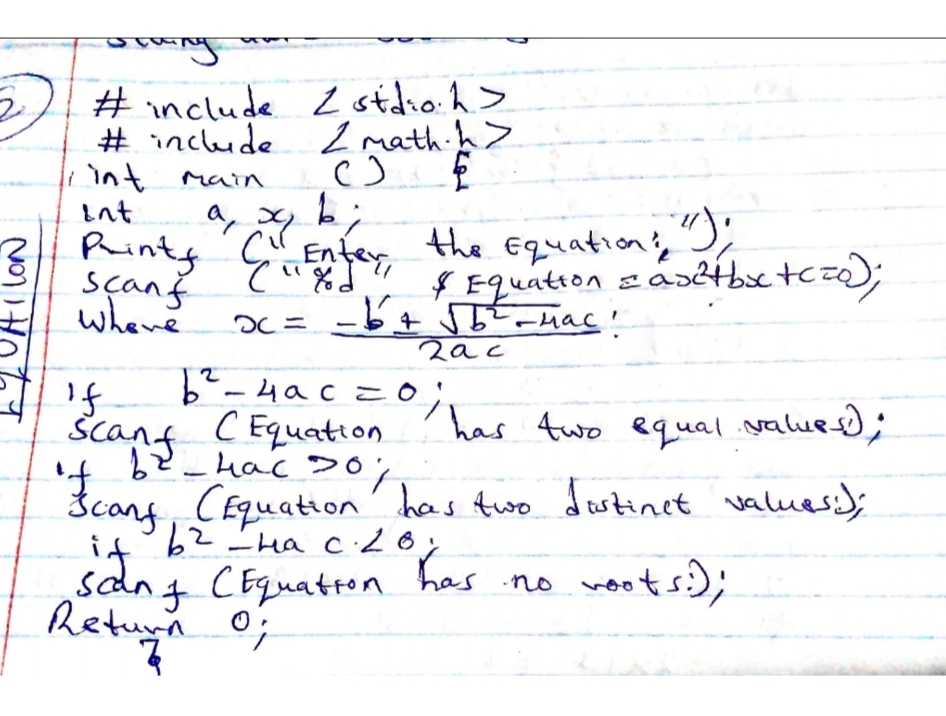 2
# include < stdio.h >
# include < math.h >
int main () {
int a, x, b;
Printf (" Enter the Equation: ");
scanf ("%d", & Equation = ax²+bx+c=0);
Where x = -b ± √b²-4ac
2ac
if b²-4ac = 0;
Scanf (Equation has two equal values:);
if b²-4ac > 0;
Scanf (Equation has two distinct values:);
if b²-4ac < 0;
scanf (Equation has no roots:);
Return 0;
}